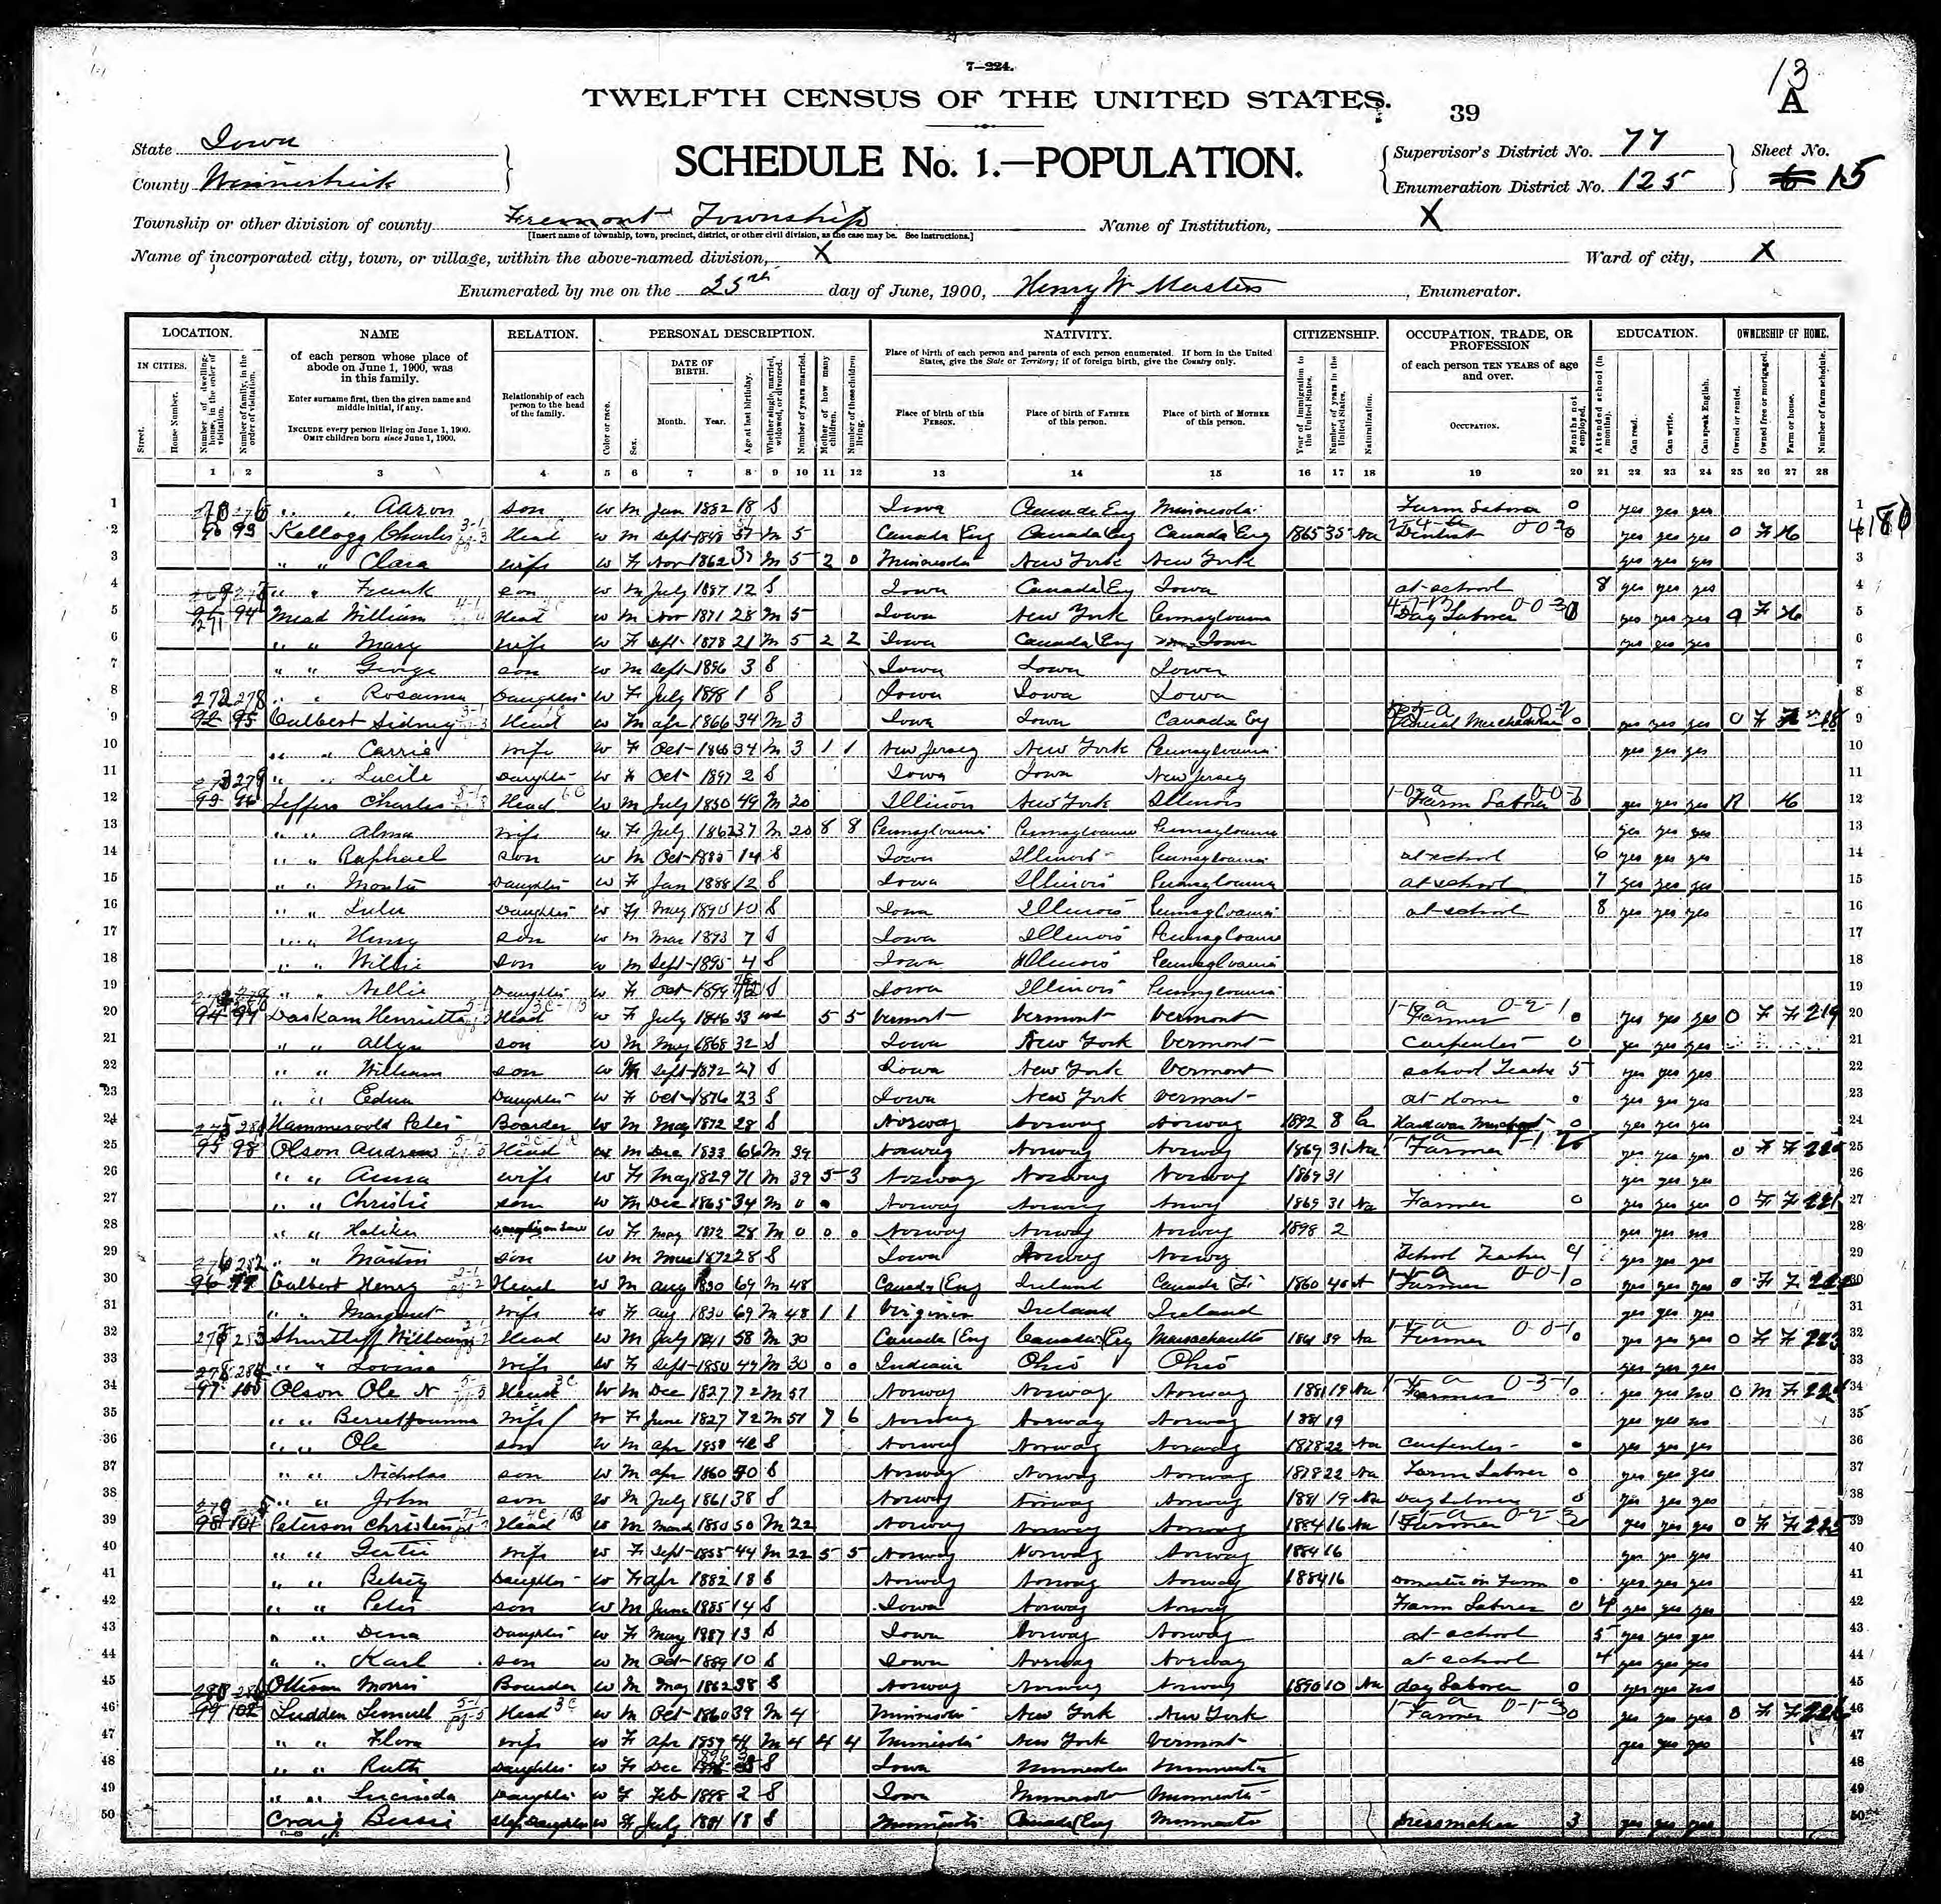 7—224.
13
A
TWELFTH CENSUS OF THE UNITED STATES.
39
State Iowa
County Winneshiek
SCHEDULE No. 1.—POPULATION.
Supervisor's District No. 77
Enumeration District No. 125
Sheet No.
6 15
Township or other division of county Fremont Township
[Insert name of township, town, precinct, district, or other civil division, as the case may be. See instructions.]
Name of Institution, X
Name of incorporated city, town, or village, within the above-named division, X
Ward of city, X
Enumerated by me on the 25th day of June, 1900, Henry W Masters, Enumerator.
LOCATION. NAME RELATION. PERSONAL DESCRIPTION. NATIVITY. CITIZENSHIP. OCCUPATION, TRADE, OR PROFESSION EDUCATION. OWNERSHIP OF HOME.
IN CITIES. Street. House Number. Number of dwelling-house, in the order of visitation. Number of family, in the order of visitation.
of each person whose place of abode on June 1, 1900, was in this family.
Enter surname first, then the given name and middle initial, if any.
INCLUDE every person living on June 1, 1900.
OMIT children born since June 1, 1900.
Relationship of each person to the head of the family.
Color or race. Sex. DATE OF BIRTH. Month. Year. Age at last birthday. Whether single, married, widowed, or divorced. Number of years married. Mother of how many children. Number of these children living.
Place of birth of each person and parents of each person enumerated. If born in the United States, give the State or Territory; if of foreign birth, give the Country only.
Place of birth of this PERSON. Place of birth of FATHER of this person. Place of birth of MOTHER of this person.
Year of immigration to the United States. Number of years in the United States. Naturalization.
of each person TEN YEARS of age and over.
OCCUPATION. Months not employed.
Attended school (in months). Can read. Can write. Can speak English.
Owned or rented. Owned free or mortgaged. Farm or house. Number of farm schedule.
1 2 3 4 5 6 7 8 9 10 11 12 13 14 15 16 17 18 19 20 21 22 23 24 25 26 27 28
1 " " Aaron son W M Jan 1882 18 S Iowa Canada Eng Minnesota Farm Laborer 0 yes yes yes 1
2 93 Kellogg Charles Head W M Sept 1848 51 M 5 Canada Eng Canada Eng Canada Eng 1865 35 Na Dentist 0 yes yes yes O F H 2
3 " " Clara wife W F Nov 1862 37 M 5 2 0 Minnesota New York New York yes yes yes 3
4 " " Frank son W M July 1887 12 S Iowa Canada Eng Iowa at school 8 yes yes yes 4
5 94 Mead William Head W M Nov 1871 28 M 5 Iowa New York Pennsylvania Day Laborer yes yes yes O F H 5
6 " " Mary wife W F Sept 1878 21 M 5 2 2 Iowa Canada Eng Iowa yes yes yes 6
7 " " George son W M Sept 1896 3 S Iowa Iowa Iowa 7
8 " " Rosanna Daughter W F July 1898 1 S Iowa Iowa Iowa 8
9 92 95 Culbert Sidney Head W M Apr 1866 34 M 3 Iowa Iowa Canada Eng 0 yes yes yes O F 9
10 " " Carrie wife W F Oct 1866 34 M 3 1 1 New Jersey New York Pennsylvania yes yes yes 10
11 " " Lucile Daughter W F Oct 1897 2 S Iowa Iowa New Jersey 11
12 93 96 Jeffers Charles Head W M July 1850 49 M 20 Illinois New York Illinois Farm Laborer yes yes yes R H 12
13 " " Alma wife W F July 1862 37 M 20 8 8 Pennsylvania Pennsylvania Pennsylvania yes yes yes 13
14 " " Raphael son W M Oct 1885 14 S Iowa Illinois Pennsylvania at school 6 yes yes yes 14
15 " " Daughter W F Jan 1888 12 S Iowa Illinois Pennsylvania at school 7 yes yes yes 15
16 " " Lulu Daughter W F May 1890 10 S Iowa Illinois Pennsylvania at school 8 yes yes yes 16
17 " " Henry son W M Mar 1893 7 S Iowa Illinois Pennsylvania 17
18 " " Willie son W M Sept 1895 4 S Iowa Illinois Pennsylvania 18
19 " " Nellie Daughter W F Oct 1899 S Iowa Illinois Pennsylvania 19
20 94 97 Daskam Henrietta Head W F July 1846 53 wd 5 5 Vermont Vermont Vermont Farmer 0 yes yes yes O F F 219 20
21 " " Allyn son W M May 1868 32 S Iowa New York Vermont Carpenter 0 yes yes yes 21
22 " " William son W M Sept 1872 27 S Iowa New York Vermont school Teacher 5 yes yes yes 22
23 " " Edna Daughter W F Oct 1876 23 S Iowa New York Vermont at Home 0 yes yes yes 23
24 Hammervold Peter Boarder W M May 1872 28 S Norway Norway Norway 1892 8 Hardware Merchant 0 yes yes yes 24
25 95 98 Olson Andrew Head W M Dec 1833 66 M 39 Norway Norway Norway 1869 31 Na Farmer yes yes yes O F F 220 25
26 " " Anna wife W F May 1829 71 M 39 5 3 Norway Norway Norway 1869 31 yes yes yes 26
27 " " Christie son W M Dec 1865 34 M 0 Norway Norway Norway 1869 31 Na Farmer 0 yes yes yes O F F 221 27
28 " " Daughter in Law W F May 1872 28 M 0 0 0 Norway Norway Norway 1898 2 yes yes no 28
29 " " Martin son W M 1872 28 S Iowa Norway Norway School Teacher 4 yes yes yes 29
30 96 99 Culbert Henry Head W M Aug 1830 69 M 48 Canada Eng Ireland Canada Fr 1860 40 Farmer 0 yes yes yes O F F 30
31 " " Margaret wife W F Aug 1830 69 M 48 1 1 Virginia Ireland Ireland yes yes yes 31
32 Shurtleff William Head W M July 1841 58 M 30 Canada Eng Canada Eng Massachusetts 39 Na Farmer 0 yes yes yes O F F 223 32
33 " " Lovina wife W F Sept 1850 49 M 30 0 0 Indiana Ohio Ohio yes yes yes 33
34 97 100 Olson Ole N Head W M Dec 1827 72 M 51 Norway Norway Norway 1881 19 Na Farmer 0 yes yes no O M F 224 34
35 " " wife W F June 1827 72 M 51 7 6 Norway Norway Norway 1881 19 yes yes no 35
36 " " Ole son W M Apr 1858 42 S Norway Norway Norway 1878 22 Na Carpenter yes yes yes 36
37 " " Nicholas son W M Apr 1860 40 S Norway Norway Norway 1878 22 Na Farm Laborer 0 yes yes yes 37
38 " " John son W M July 1861 38 S Norway Norway Norway 1881 19 Na Day Laborer 0 yes yes yes 38
39 98 101 Peterson Christen Head W M March 1850 50 M 22 Norway Norway Norway 1884 16 Na Farmer yes yes yes O F F 225 39
40 " " Gertie wife W F Sept 1855 44 M 22 5 5 Norway Norway Norway 1884 16 yes yes yes 40
41 " " Betsey Daughter W F Apr 1882 18 S Norway Norway Norway 1884 16 Domestic on Farm 0 yes yes yes 41
42 " " Peter son W M June 1885 14 S Iowa Norway Norway Farm Laborer 0 4 yes yes yes 42
43 " " Dena Daughter W F May 1887 13 S Iowa Norway Norway at school 5 yes yes yes 43
44 " " Karl son W M Oct 1889 10 S Iowa Norway Norway at school 4 yes yes yes 44
45 Morris Boarder W M May 1862 38 S Norway Norway Norway 1890 10 Na day Laborer 0 yes yes no 45
46 99 102 Ludden Lemuel Head W M Oct 1860 39 M 4 Minnesota New York New York Farmer 0 yes yes yes O F F 226 46
47 " " Flora wife W F Apr 1859 41 M 4 4 4 Minnesota New York Vermont yes yes yes 47
48 " " Ruth Daughter W F Dec 1896 3 S Iowa Minnesota Minnesota 48
49 " " Lucinda Daughter W F Feb 1898 2 S Iowa Minnesota Minnesota 49
50 Craig Bessie Step Daughter W F July 1881 18 S Minnesota Canada Eng Minnesota Dressmaker 3 yes yes yes 50